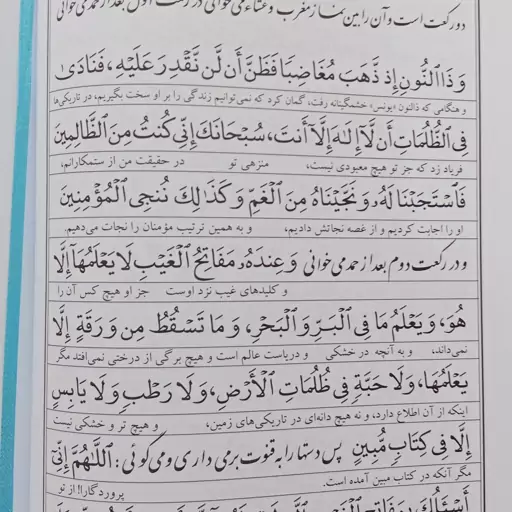 دو رکعت است و آن را بین نماز مغرب و عشاء می خوانی در رکعت اول بعد از حمد می خوانی
وَ ذَا النُّونِ إِذ ذَّهَبَ مُغَاضِبًا فَظَنَّ أَن لَّن نَّقْدِرَ عَلَيْهِ، فَنَادَىٰ
و هنگامی که ذالنون «یونس» خشمگینانه رفت، گمان کرد که نمی‌توانیم زندگی را بر او سخت بگیریم، در تاریکی‌ها
فِي الظُّلُمَاتِ أَن لَّا إِلَٰهَ إِلَّا أَنتَ، سُبْحَانَكَ إِنِّي كُنتُ مِنَ الظَّالِمِينَ
فریاد زد که جز تو هیچ معبودی نیست، منزهی تو در حقیقت من از ستمکارانم،
فَاسْتَجَبْنَا لَهُ وَ نَجَّيْنَاهُ مِنَ الْغَمِّ وَ كَذَٰلِكَ نُنجِي الْمُؤْمِنِينَ
او را اجابت کردیم و از غصه نجاتش دادیم، و به همین ترتیب مؤمنان را نجات می‌دهیم.
و در رکعت دوم بعد از حمد می خوانی وَ عِندَهُ مَفَاتِحُ الْغَيْبِ لَا يَعْلَمُهَا إِلَّا
و کلیدهای غیب نزد اوست جز او هیچ کس آن را
هُوَ، وَ يَعْلَمُ مَا فِي الْبَرِّ وَ الْبَحْرِ، وَ مَا تَسْقُطُ مِن وَرَقَةٍ إِلَّا
نمی‌داند، و به آنچه در خشکی و دریاست عالم است و هیچ برگی از درختی نمی‌افتد مگر
يَعْلَمُهَا، وَ لَا حَبَّةٍ فِي ظُلُمَاتِ الْأَرْضِ، وَ لَا رَطْبٍ وَ لَا يَابِسٍ
اینکه از آن اطلاع دارد، و نه هیچ دانه‌ای در تاریکی‌های زمین، و هیچ تر و خشکی نیست
إِلَّا فِي كِتَابٍ مُّبِينٍ پس دستها را به قنوت برمی داری و می گوئی: اللَّهُمَّ إِنِّي
مگر آنکه در کتاب مبین آمده است. پروردگارا! از تو
أَسْئَلُكَ بِمَفَاتِحِ الْغَيْبِ